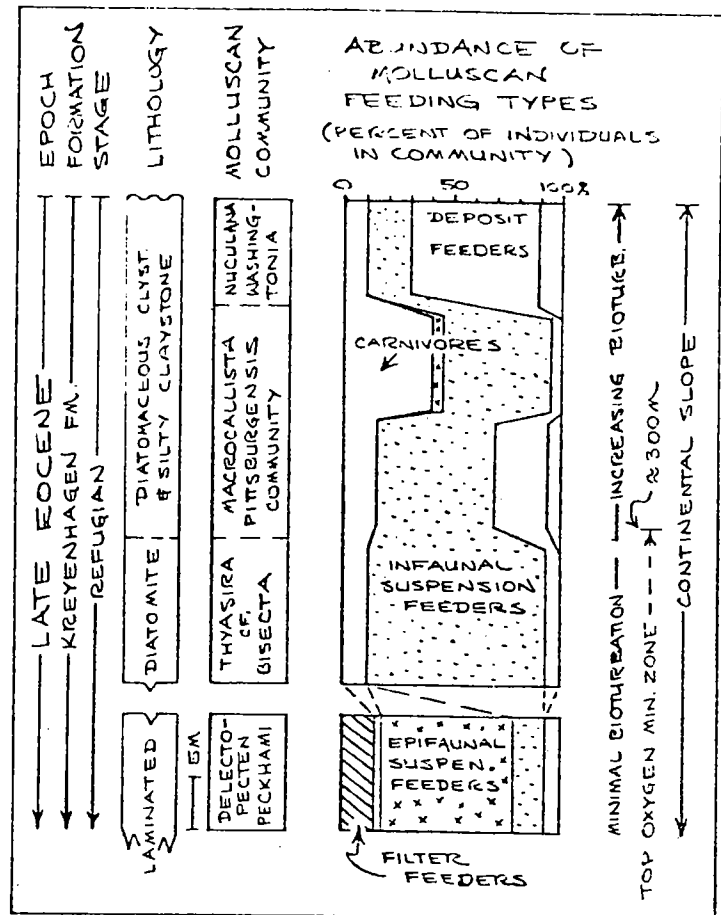 EPOCH
FORMATION
STAGE
LITHOLOGY
MOLLUSCAN
COMMUNITY
ABUNDANCE OF
MOLLUSCAN
FEEDING TYPES
(PERCENT OF INDIVIDUALS
IN COMMUNITY)
0 50 100%
LATE EOCENE
KREYENHAGEN FM.
REFUGIAN
DIATOMACEOUS CLYST.
& SILTY CLAYSTONE
DIATOMITE
LAMINATED
5M
NUCULANA
WASHING-
TONIA
MACROCALLISTA
PITTSBURGENSIS
COMMUNITY
THYASIRA
CF.
BISECTA
DELECTO-
PECTEN
PECKHAMI
DEPOSIT
FEEDERS
CARNIVORES
INFAUNAL
SUSPENSION
FEEDERS
EPIFAUNAL
SUSPEN.
FEEDERS
FILTER
FEEDERS
MINIMAL BIOTUREATION
INCREASING BIOTURB.
≈300M
TOP OXYGEN MIN. ZONE
CONTINENTAL SLOPE